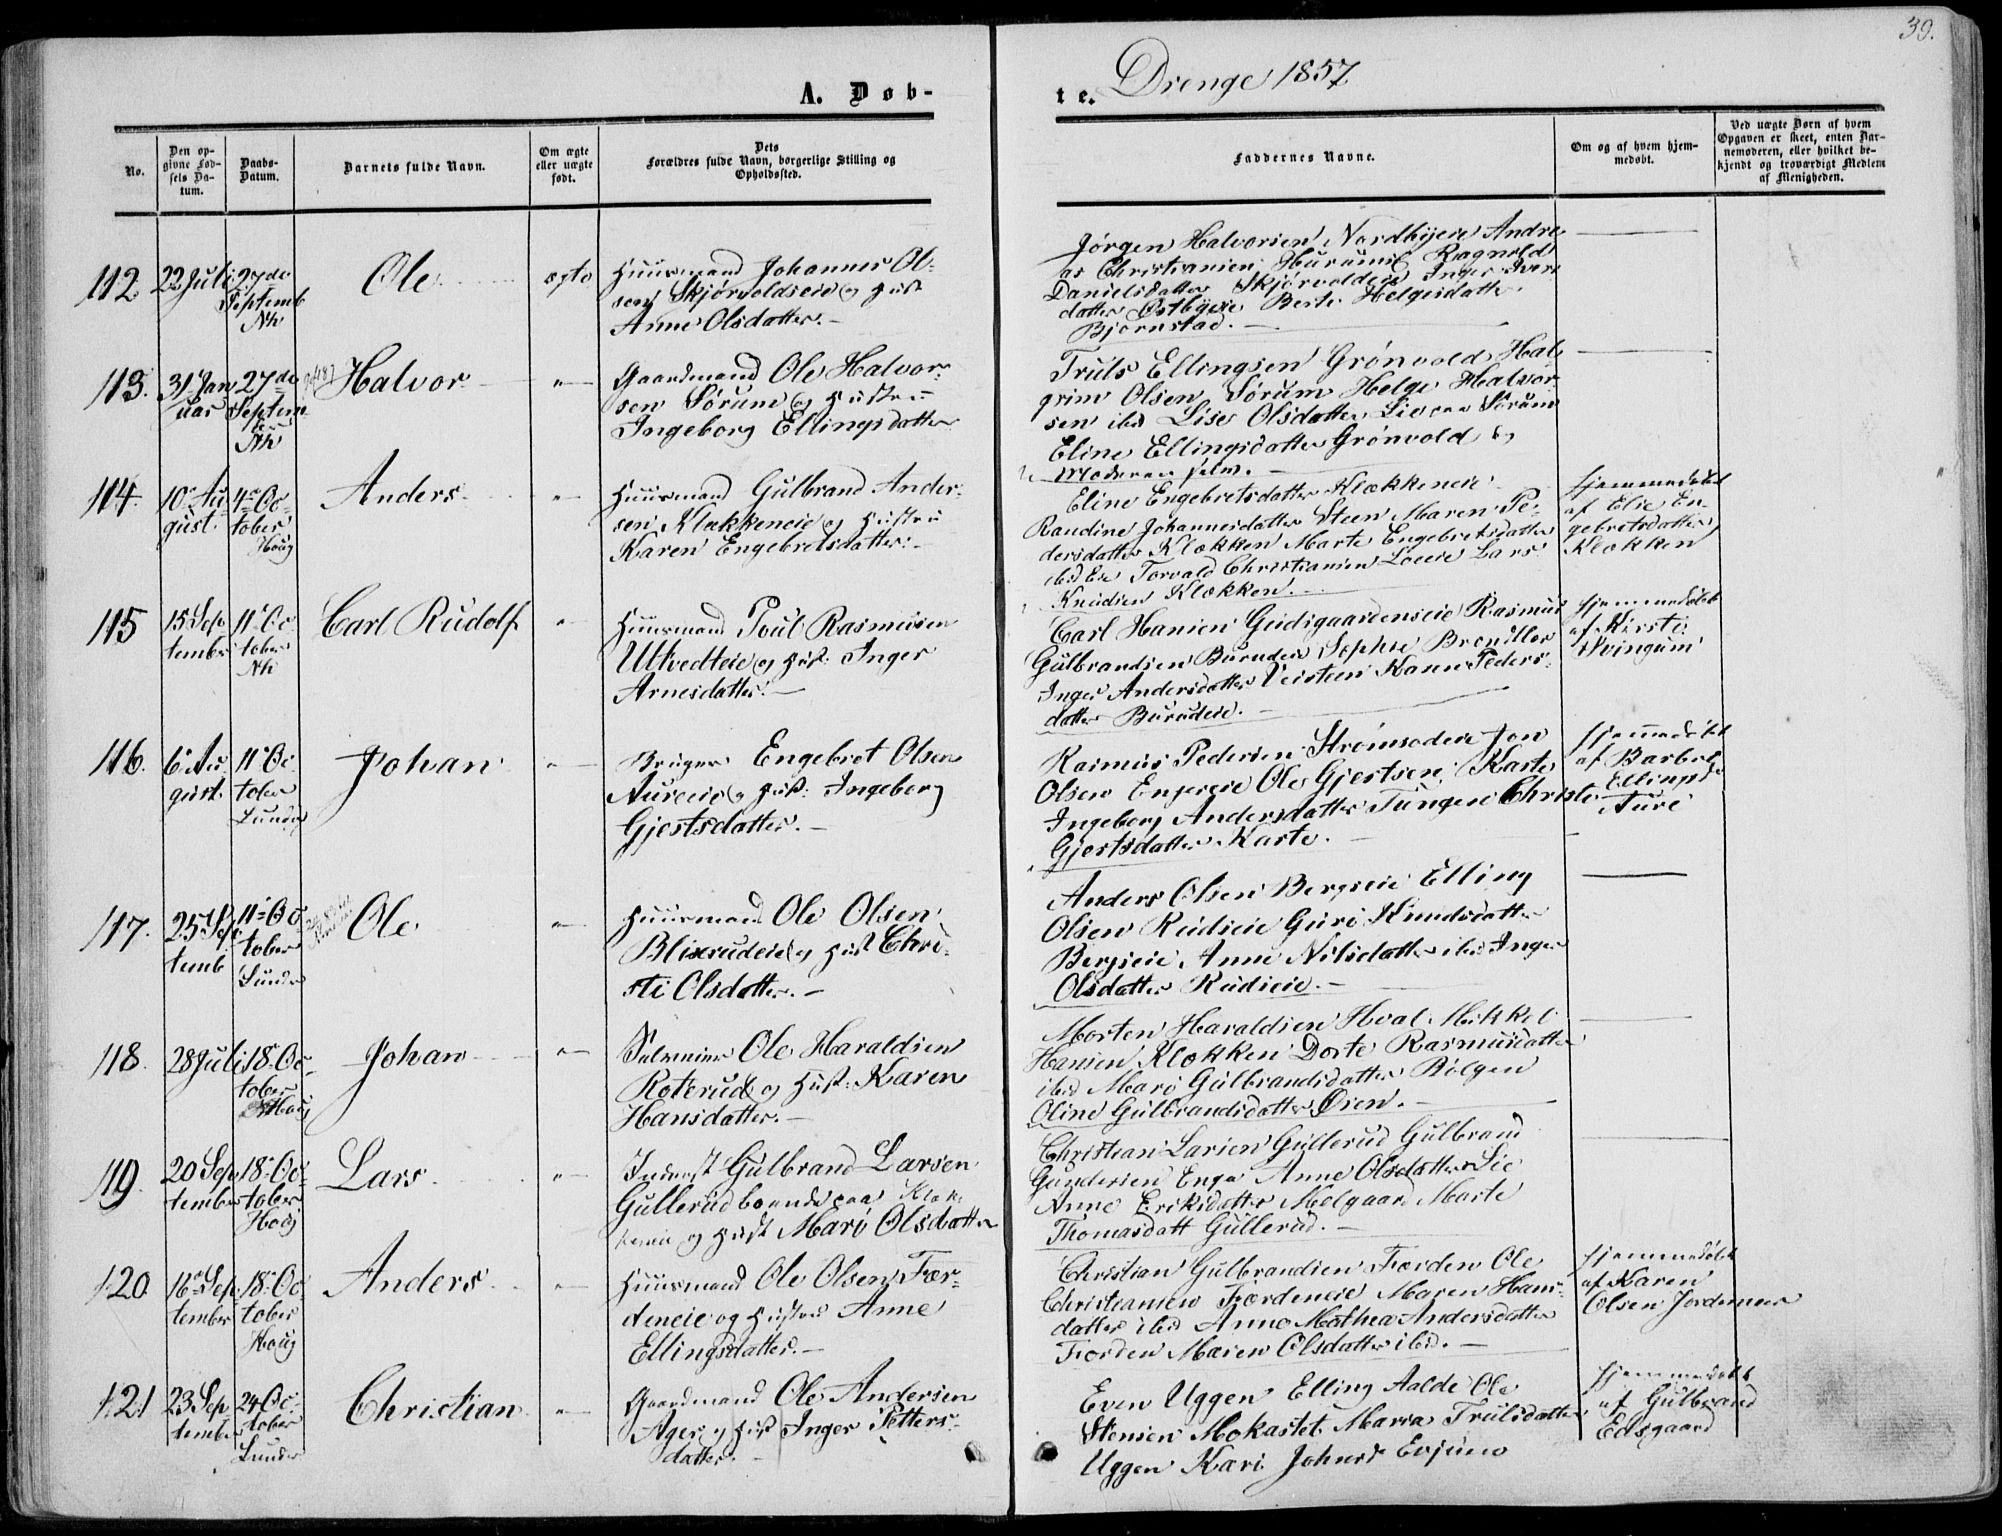 39.
A. Døb-
te.
Drenge 1857
No.
Den op-
givne Fød-
sels Da-
tum.
Daabs-
Datum.
Barnets fulde Navn.
Om ægte
eller uægte
født.
Dets
Forældres fulde Navn, borgerlige Stilling og
Opholdssted.
Faddernes Navne.
Om og af hvem hjem-
medøbt.
Ved uægte Børn af hvem
Opgaven er skeet, enten Bar-
nemoderen, eller hvilket be-
kjendt og troværdigt Medlem
af Menigheden.
112
22 Juli
27de
Septemb
Nh
Ole
ægte
Huusmand Johannes Ol-
sen Skjørvoldseie og Hust
Anne Olsdatter. –
Jørgen Halvorsen Nordbyeie Andre
as Christiansen Hurums Ragnild
Danielsdatter Skjørvoldeie Inger Ivers
datter Østbyeie Berte Helgesdatter
Bjørnstad. –
113.
31 Jan
uar
27de
Septem
ber
Nh
Halvor
"
Gaardmand Ole Halvor-
sen Sørum og Hustru
Ingeborg Ellingsdatter
Truls Ellingsen Grønvold Hal
grim Olsen Sørum Helge Halvor-
sen ibd Lise Olsdatter Sørum
Eline Ellingsdatter Grønvold og
Moderen selv. –
114.
10 Au
gust.
4 Oc-
tober
Houg
Anders
"
Huusmand Gulbrand Ander-
sen Klækkeneie og Hustru
Karen Engebretsdatter. –
Eline Engebretsdatter Klækkeneie
Randine Johannesdatter Steen Maren Pe-
dersdatter Klækken Marte Engebretsdatter
ibd Eie Torvald Christiansen Loeeie Lars
Knudsen Klækken.
Hjemmedøbt
af Elie En-
gebretsdatter
Klækken
115
15 Sep
tember
11 Oc
tober
Nh
Carl Rudolf
"
Huusmand Poul Rasmusen
Ultvedteie og Hust: Inger
Arnesdatter. –
Carl Hansen Gudsgaardenseie Rasmus
Gulbrandsen Burudeie Sophie Brendler
Inger Andersdatter Veisteen Karen Peders-
datter Burudeie. –
Hjemmedøbt
af Kirsti
Svingum
116.
6 Au
gust.
11 Oc
tober
Lunder
Johan
"
Bruger Engebret Olsen
Aureeie og Hust: Ingeborg
Gjestsdatter. –
Rasmus Pedersen Strømsoderie Jon
Olsen Engereie Ole Gjestsen Karte
Ingeborg Andersdatter Tungeie Christi
Gjertsdatter Karte. –
Hjemmedøbt
af Barbro
Ellingsd
Aure
117.
25 Sep
temb
11 Oc
tober
Lunder
Ole
"
Huusmand Ole Olsen
Blixerudeie og Hust Chri-
sti Olsdatter. –
Anders Olsen Bergseie Elling
Olsen Rudseie Guro Knudsdatter
Bergseie Anne Nilsdatter ibd Inger
Olsdatter Rudseie. –
118.
28 Juli
18 Oc-
tober
Houg
Johan
"
Selveier Ole Haraldsen
Roterud og Hust: Karen
Hansdatter. –
Morten Haraldsen Hval Mikkel
Hansen Klækken Dorte Rasmusdatter
ibid Mari Gulbrandsdatter Bølgen
Oline Gulbrandsdatter Øien. –
119.
20 Sep
tember
18 Oc-
tober
Houg
Lars
"
Inderst Gulbrand Larsen
Gullerud boende paa Klæk-
keneie og Hust Mari Olsdatter
Christian Larsen Gullerud Gulbrand
Gundersen Enga Anne Olsdatter Lie
Anne Eriksdatter Melgaard Marte
Thomasdatt Gullerud. –
120
16 Sep-
tember
18 Oc
tober
Houg
Anders
"
Huusmand Ole Olsen Fær-
deneie og Hustru Anne
Ellingsdatter. –
Christian Gulbrandsen Færden Ole
Christiansen Færdeneie Maren Hans-
datter ibid Anne Mathea Andersdatter
Færden Maren Olsdatter ibd. –
Hjemmedøbt
af Karen
Olsen Jordemoer
121
23 Sep
tember
24 Oc-
tober
Lunder
Christian
"
Gaardmand Ole Andersen
Ager og Hust Inger Petters-
datter. –
Even Uggen Elling Aalde Ole
Stensen Mokastet Maria Trulsdatter
Uggen Kari Johnsd Evjuno
Hjemmedøbt
af Gulbrand
Edsgaard